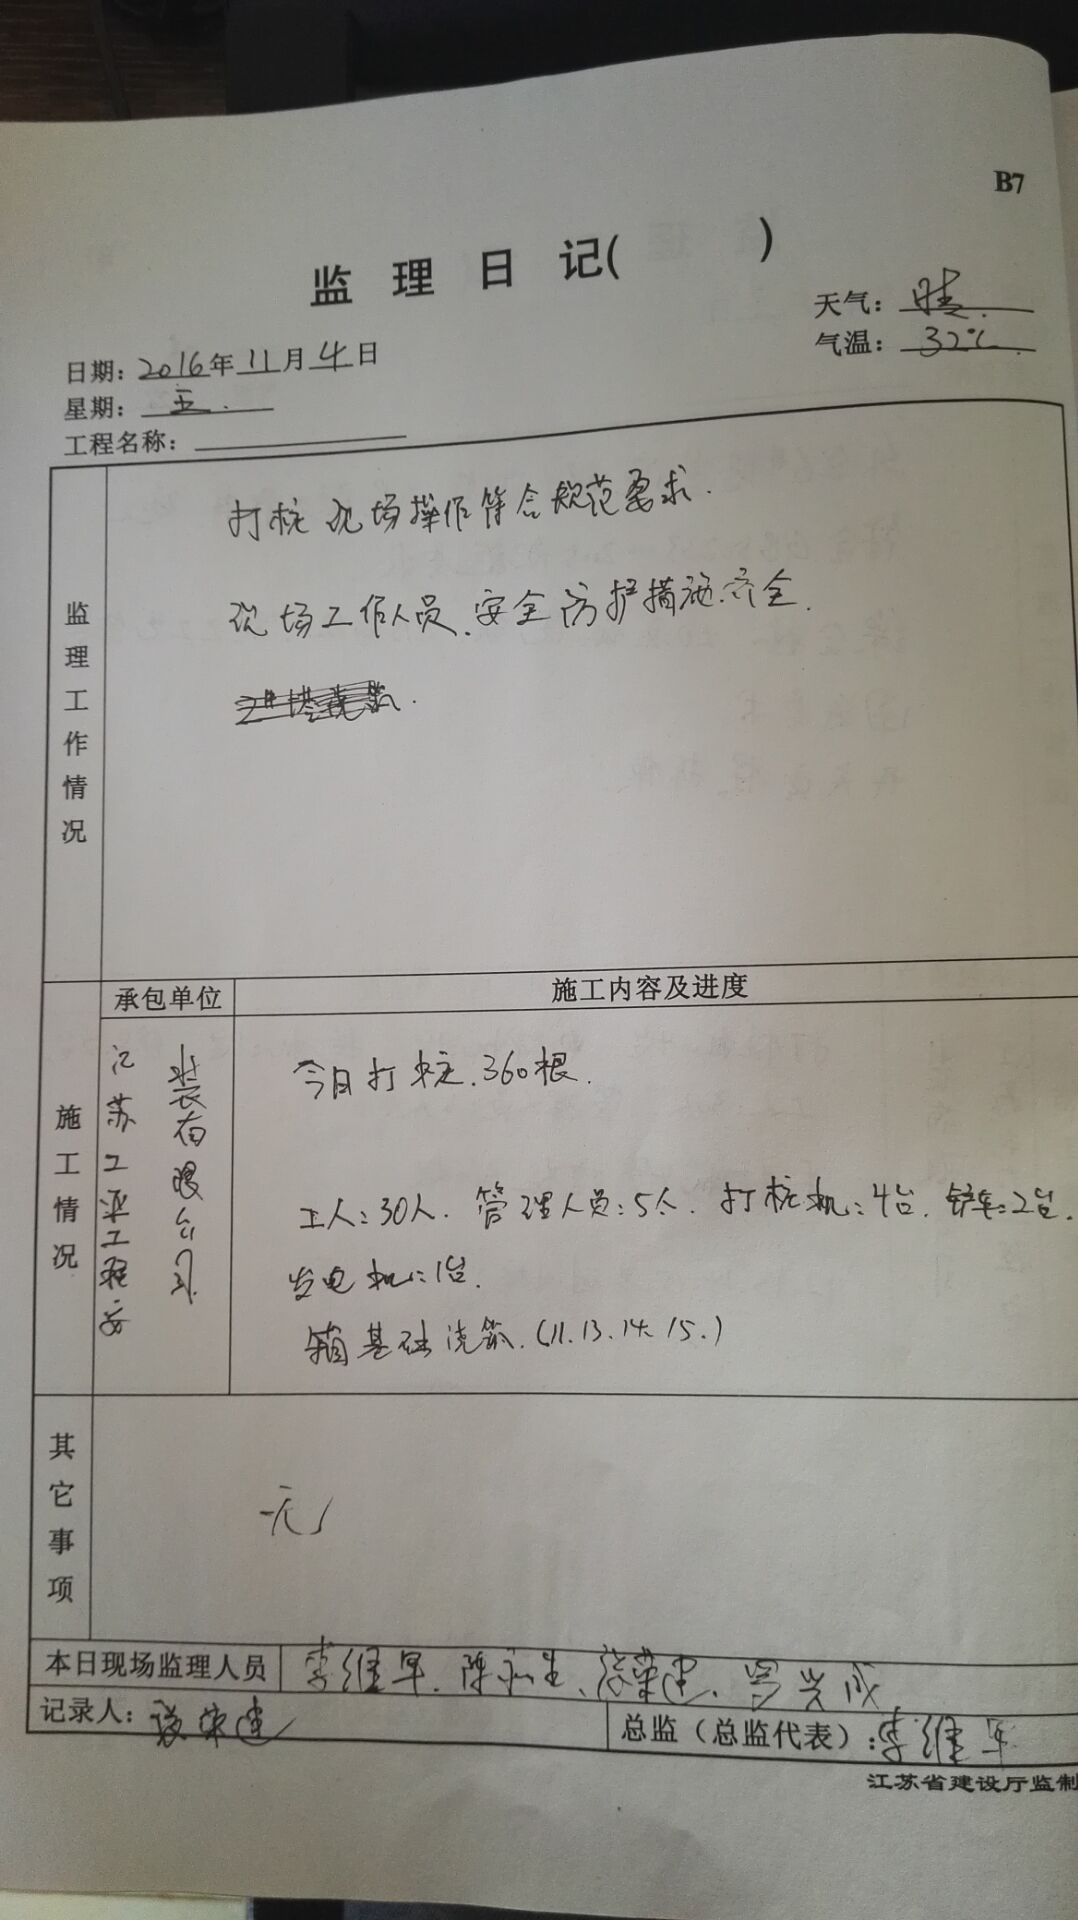 B7
监理日记( )
天气：晴.
气温：32℃.
日期：2016年11月4日
星期：五.
工程名称：
监理工作情况
打桩现场操作符合规范要求.
现场工作人员.安全防护措施.齐全.
承包单位
施工内容及进度
施工情况
江苏工业工程安
装有限公司.
今日打桩.360根.
工人：30人. 管理人员：5人. 打桩机：4台. 铲车：2台.
发电机：1台.
箱基础浇筑.(11.13.14.15.)
其它事项
无
本日现场监理人员 李继军.陈 生、 荣建、
记录人： 荣建
总监（总监代表）：李继军
江苏省建设厅监制